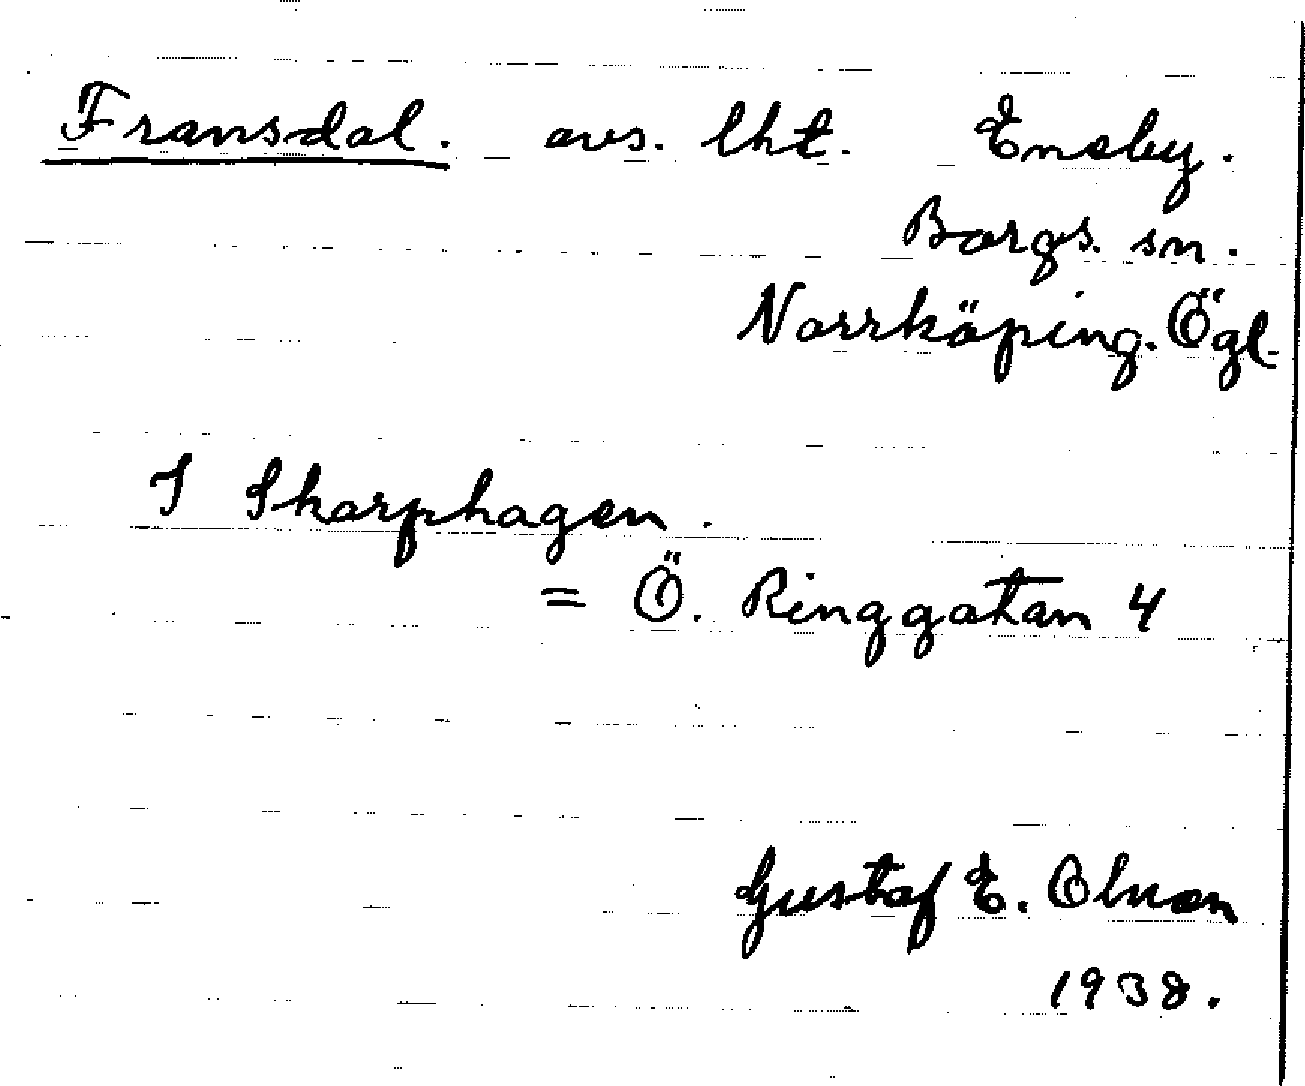 Fransdal. avs. lht. Eneby.
Borgs. sn.
Norrköping. Ögl.
I Skarphagen.
= Ö. Ringgatan 4
Gustaf E. Olson
1938.